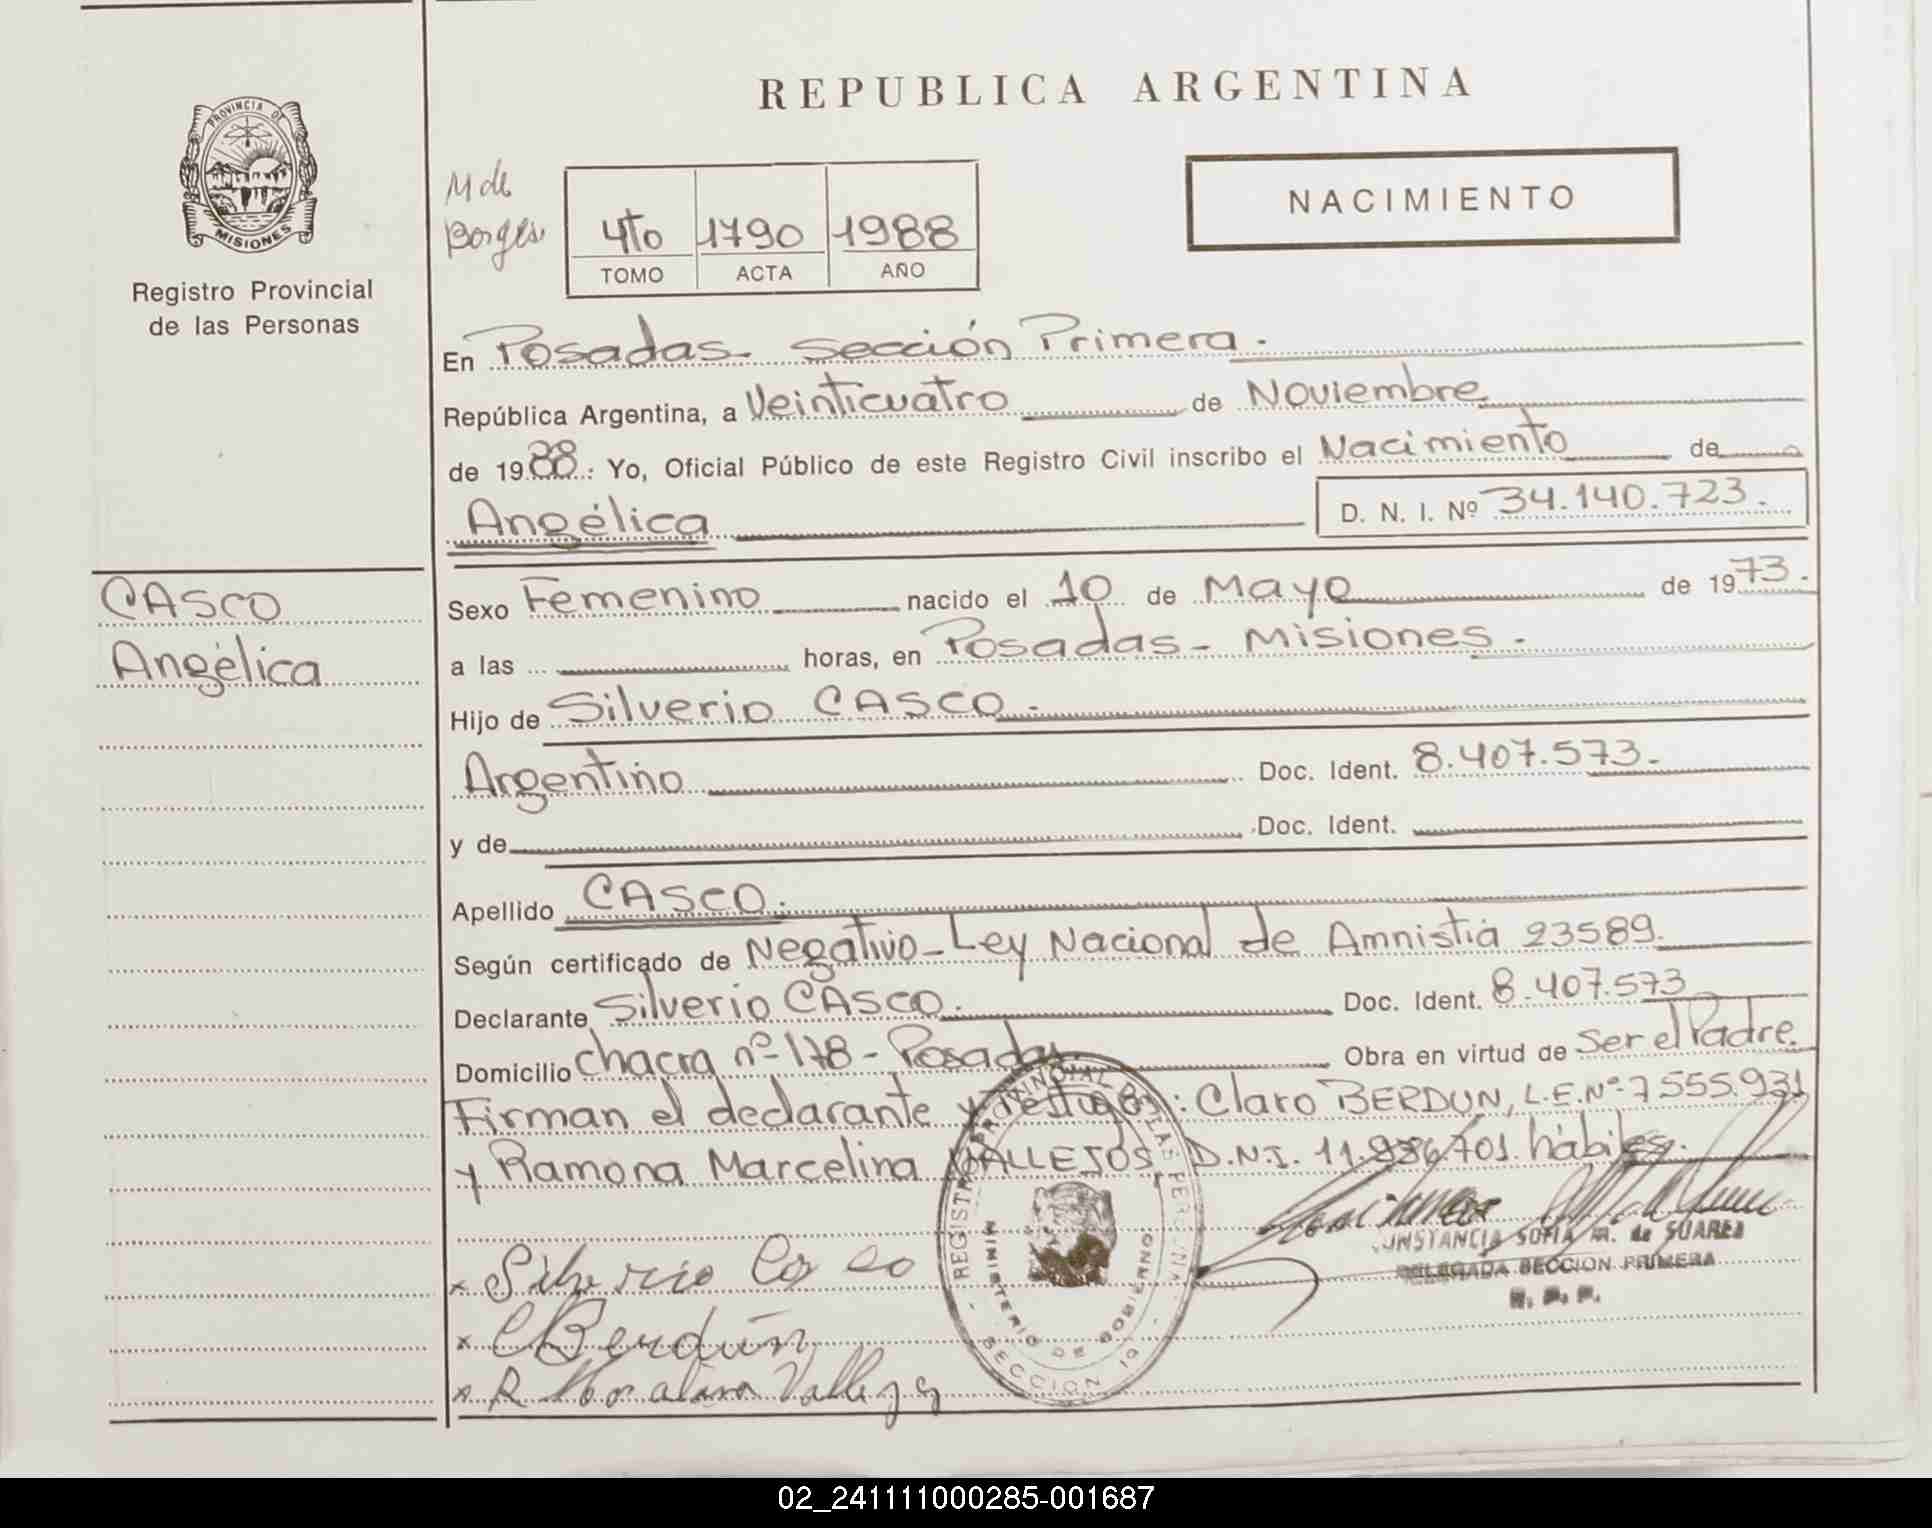 REPUBLICA ARGENTINA
PROVINCIA DE
MISIONES
Registro Provincial
de las Personas
M de
Borges
4to 1790 1988
TOMO ACTA AÑO
NACIMIENTO
En Posadas - Sección Primera.
República Argentina, a Veinticuatro de Noviembre
de 1988.: Yo, Oficial Público de este Registro Civil inscribo el Nacimiento de
Angélica D. N. I. Nº 34.140.723.
CASCO
Angélica
Sexo Femenino nacido el 10 de Mayo de 1973.
a las horas, en Posadas - Misiones.
Hijo de Silverio CASCO.
Argentino Doc. Ident. 8.407.573.
y de Doc. Ident.
Apellido CASCO.
Según certificado de Negativo - Ley Nacional de Amnistiá 23589.
Declarante Silverio CASCO. Doc. Ident. 8.407.573
Domicilio chacra nº 178 - Posadas. Obra en virtud de Ser el Padre.
Firman el declarante y Testigos: Claro BERDUN, L.E.Nº 7555.931
y Ramona Marcelina VALLEJOS, D.N.I. 11.986.701. hábiles.
REGISTRO PROVINCIAL DE LAS PERSONAS
MINISTERIO DE GOBIERNO
SECCION 1º
CONSTANCIA SOFIA M. de SUAREZ
DELEGADA SECCION PRIMERA
R. P. P.
x Silverio Casco
x C Berdún
x R Marcelina Vallejos
02_241111000285-001687